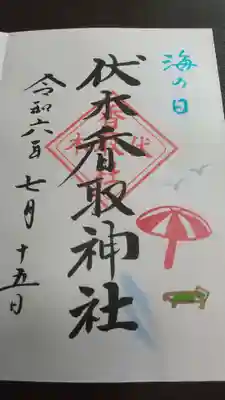 海の日
伏木香取神社
令和六年 七月 十五日